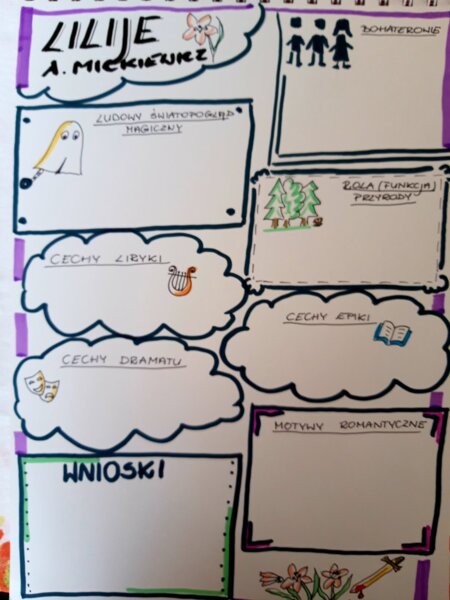 LILIJE
A. MICKIEWICZ
BOHATEROWIE
LUDOWY ŚWIATOPOGLĄD
MAGICZNY
ROLA (FUNKCJA)
PRZYRODY
CECHY LIRYKI
CECHY EPIKI
CECHY DRAMATU
MOTYWY ROMANTYCZNE
WNIOSKI